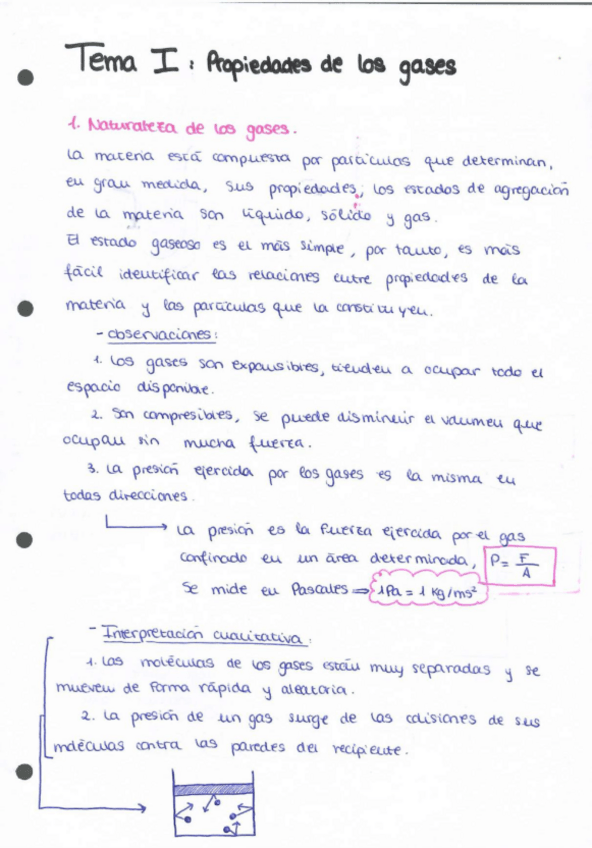 Tema I: Propiedades de los gases
1. Naturaleza de los gases.
La materia está compuesta por partículas que determinan,
en gran medida, sus propiedades, los estados de agregación
de la materia son líquido, sólido y gas.
El estado gaseoso es el más simple, por tanto, es más
fácil identificar las relaciones entre propiedades de la
materia y las partículas que la constituyen.
- Observaciones:
1. Los gases son expansibles, tienden a ocupar todo el
espacio disponible.
2. Son compresibles, se puede disminuir el volumen que
ocupan sin mucha fuerza.
3. La presión ejercida por los gases es la misma en
todas direcciones.
La presión es la fuerza ejercida por el gas
confinado en un área determinada, P = F/A
Se mide en Pascales ⇒ 1Pa = 1 kg/ms²
- Interpretación cualitativa:
1. Las moléculas de los gases están muy separadas y se
mueven de forma rápida y aleatoria.
2. La presión de un gas surge de las colisiones de sus
moléculas contra las paredes del recipiente.